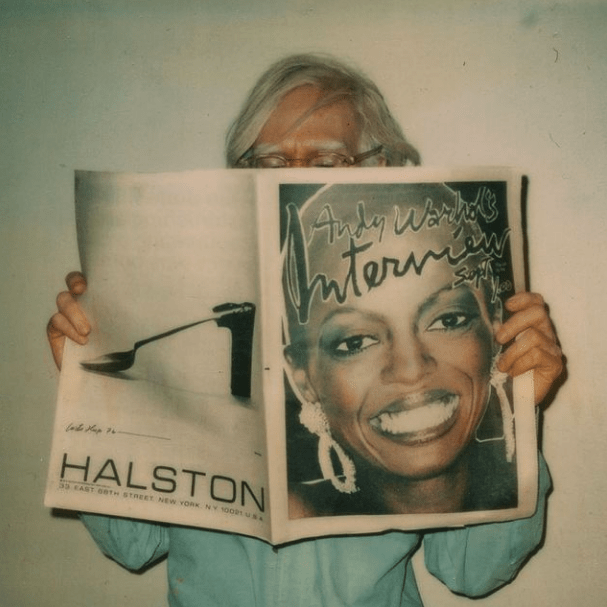 HALSTON
33 EAST 68TH STREET, NEW YORK, N.Y. 10021 U.S.A.
Andy Warhol's
Interview
Sept